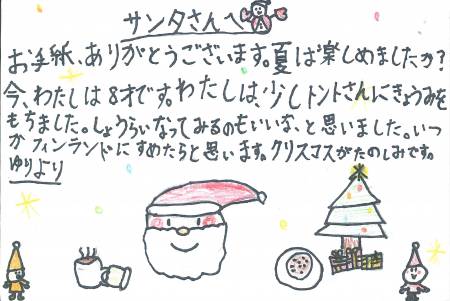 サンタさんへ
お手紙、ありがとうございます。夏は楽しめましたか?
今、わたしは8才です。わたしは、少しトントさんにきょうみを
もちました。しょうらいなってみるのもいいな、と思いました。いつ
かフィンランドにすめたらと思います。クリスマスがたのしみです。
ゆりより